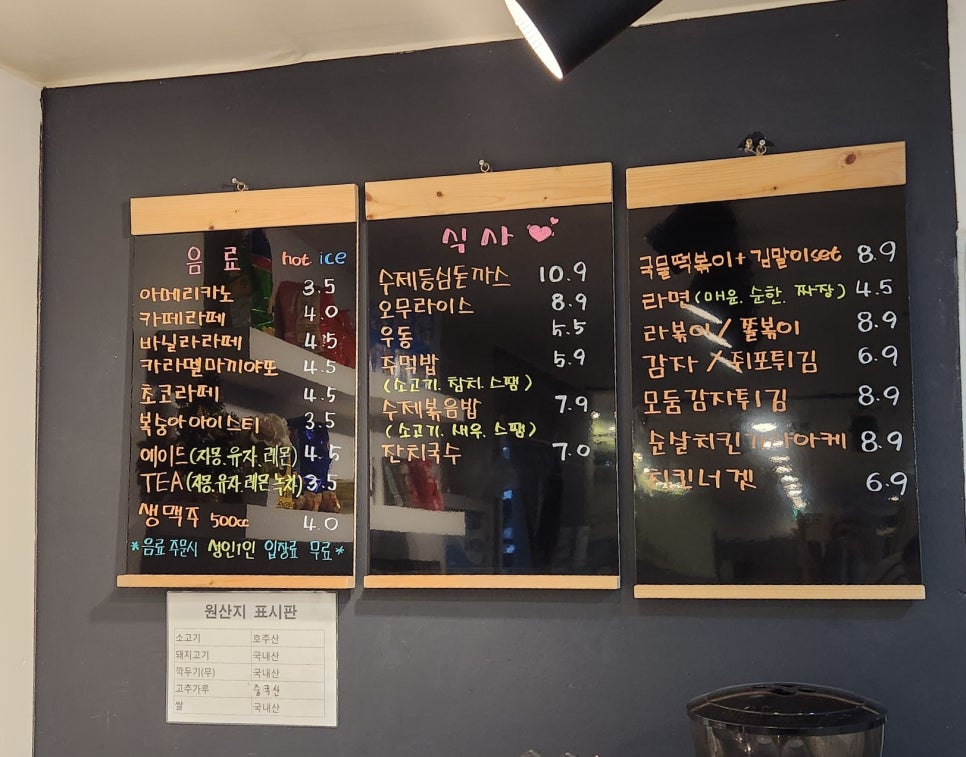 음료 hot ice
아메리카노 3.5
카페라떼 4.0
바닐라라떼 4.5
카라멜마끼야또 4.5
초코라떼 4.5
복숭아아이스티 3.5
에이드(자몽.유자.레몬) 4.5
TEA(자몽.유자.레몬.녹차) 3.5
생맥주 500cc 4.0
*음료 주문시 성인1인 입장료 무료*
식사
수제등심돈까스 10.9
오무라이스 8.9
우동 5.5
주먹밥 5.9
(소고기. 참치. 스팸)
수제볶음밥 7.9
(소고기. 새우. 스팸)
잔치국수 7.0
국물떡볶이+김말이set 8.9
라면(매운. 순한. 짜장) 4.5
라볶이/쫄볶이 8.9
감자/쥐포튀김 6.9
모둠감자튀김 8.9
순살치킨가라아케 8.9
치킨너겟 6.9
원산지 표시판
소고기 호주산
돼지고기 국내산
깍두기(무) 국내산
고추가루 중국산
쌀 국내산